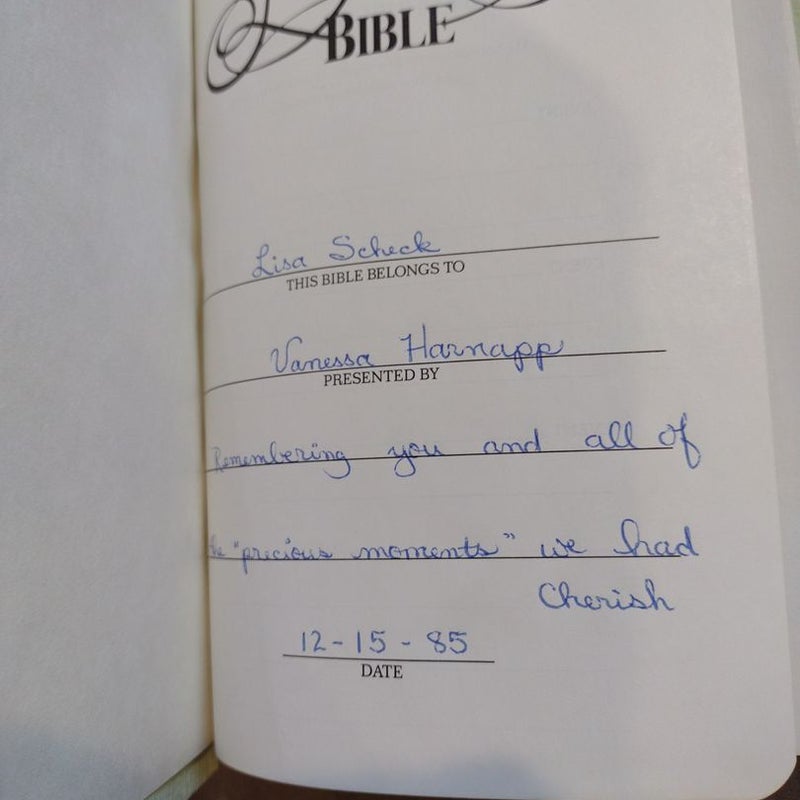 BIBLE
Lisa Scheck
THIS BIBLE BELONGS TO
Vanessa Harnapp
PRESENTED BY
Remembering you and all of
the "precious moments" we had
Cherish
12-15-85
DATE